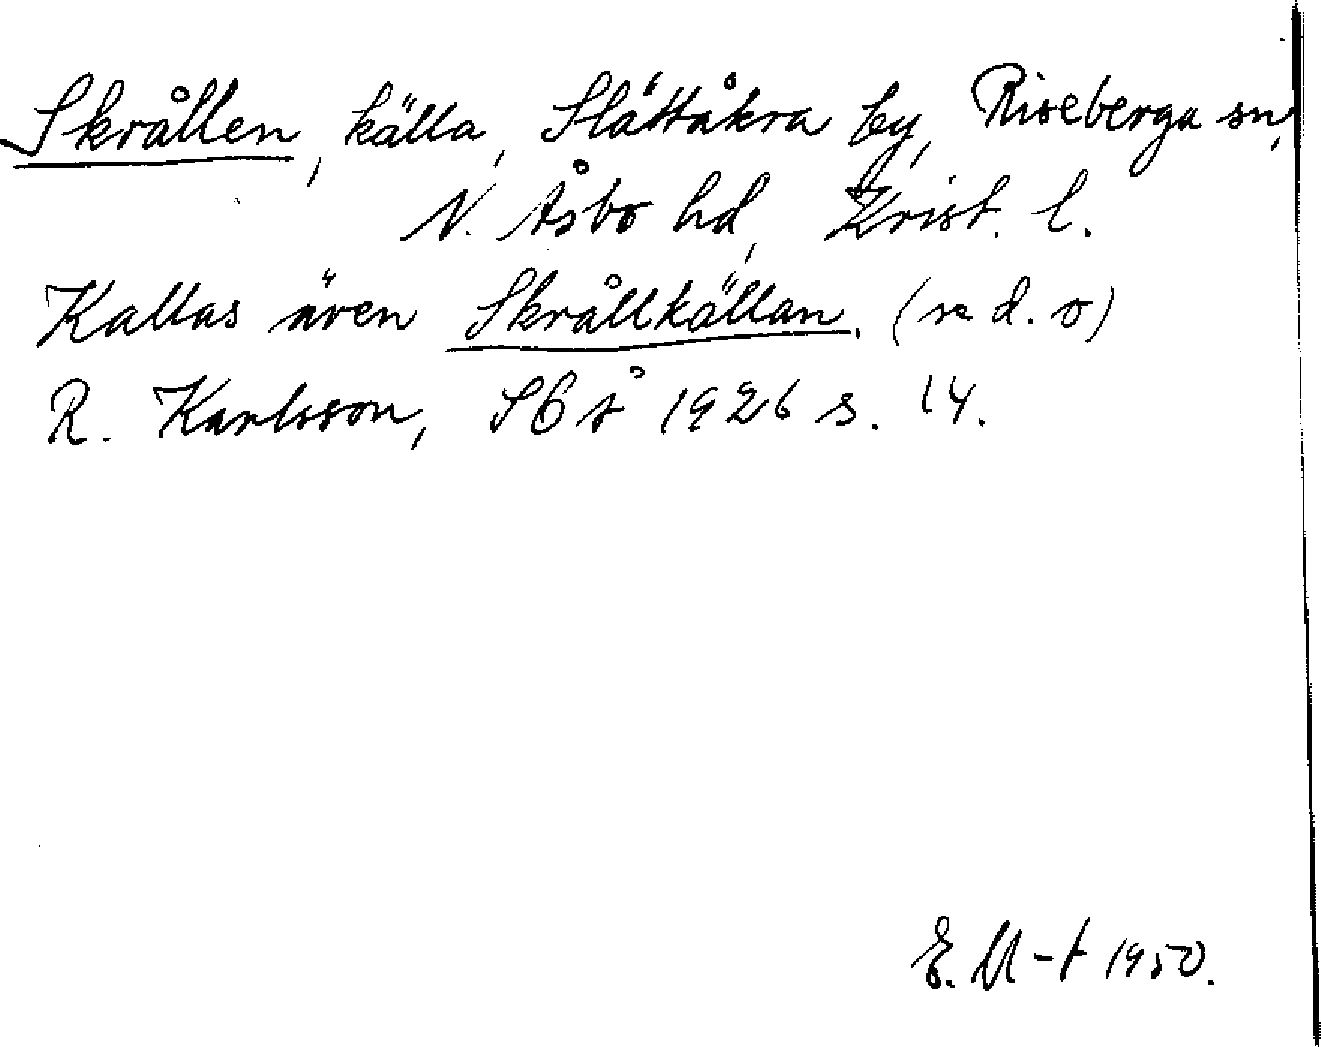 Skrållen, källa, Slättåkra by, Riseberga sn,
N. Åsbo hd, Krist. l.
Kallas även Skrållkällan. (se d. o)
R. Karlsson, SGÅ 1926 s. 14.
E. M-t 1950.